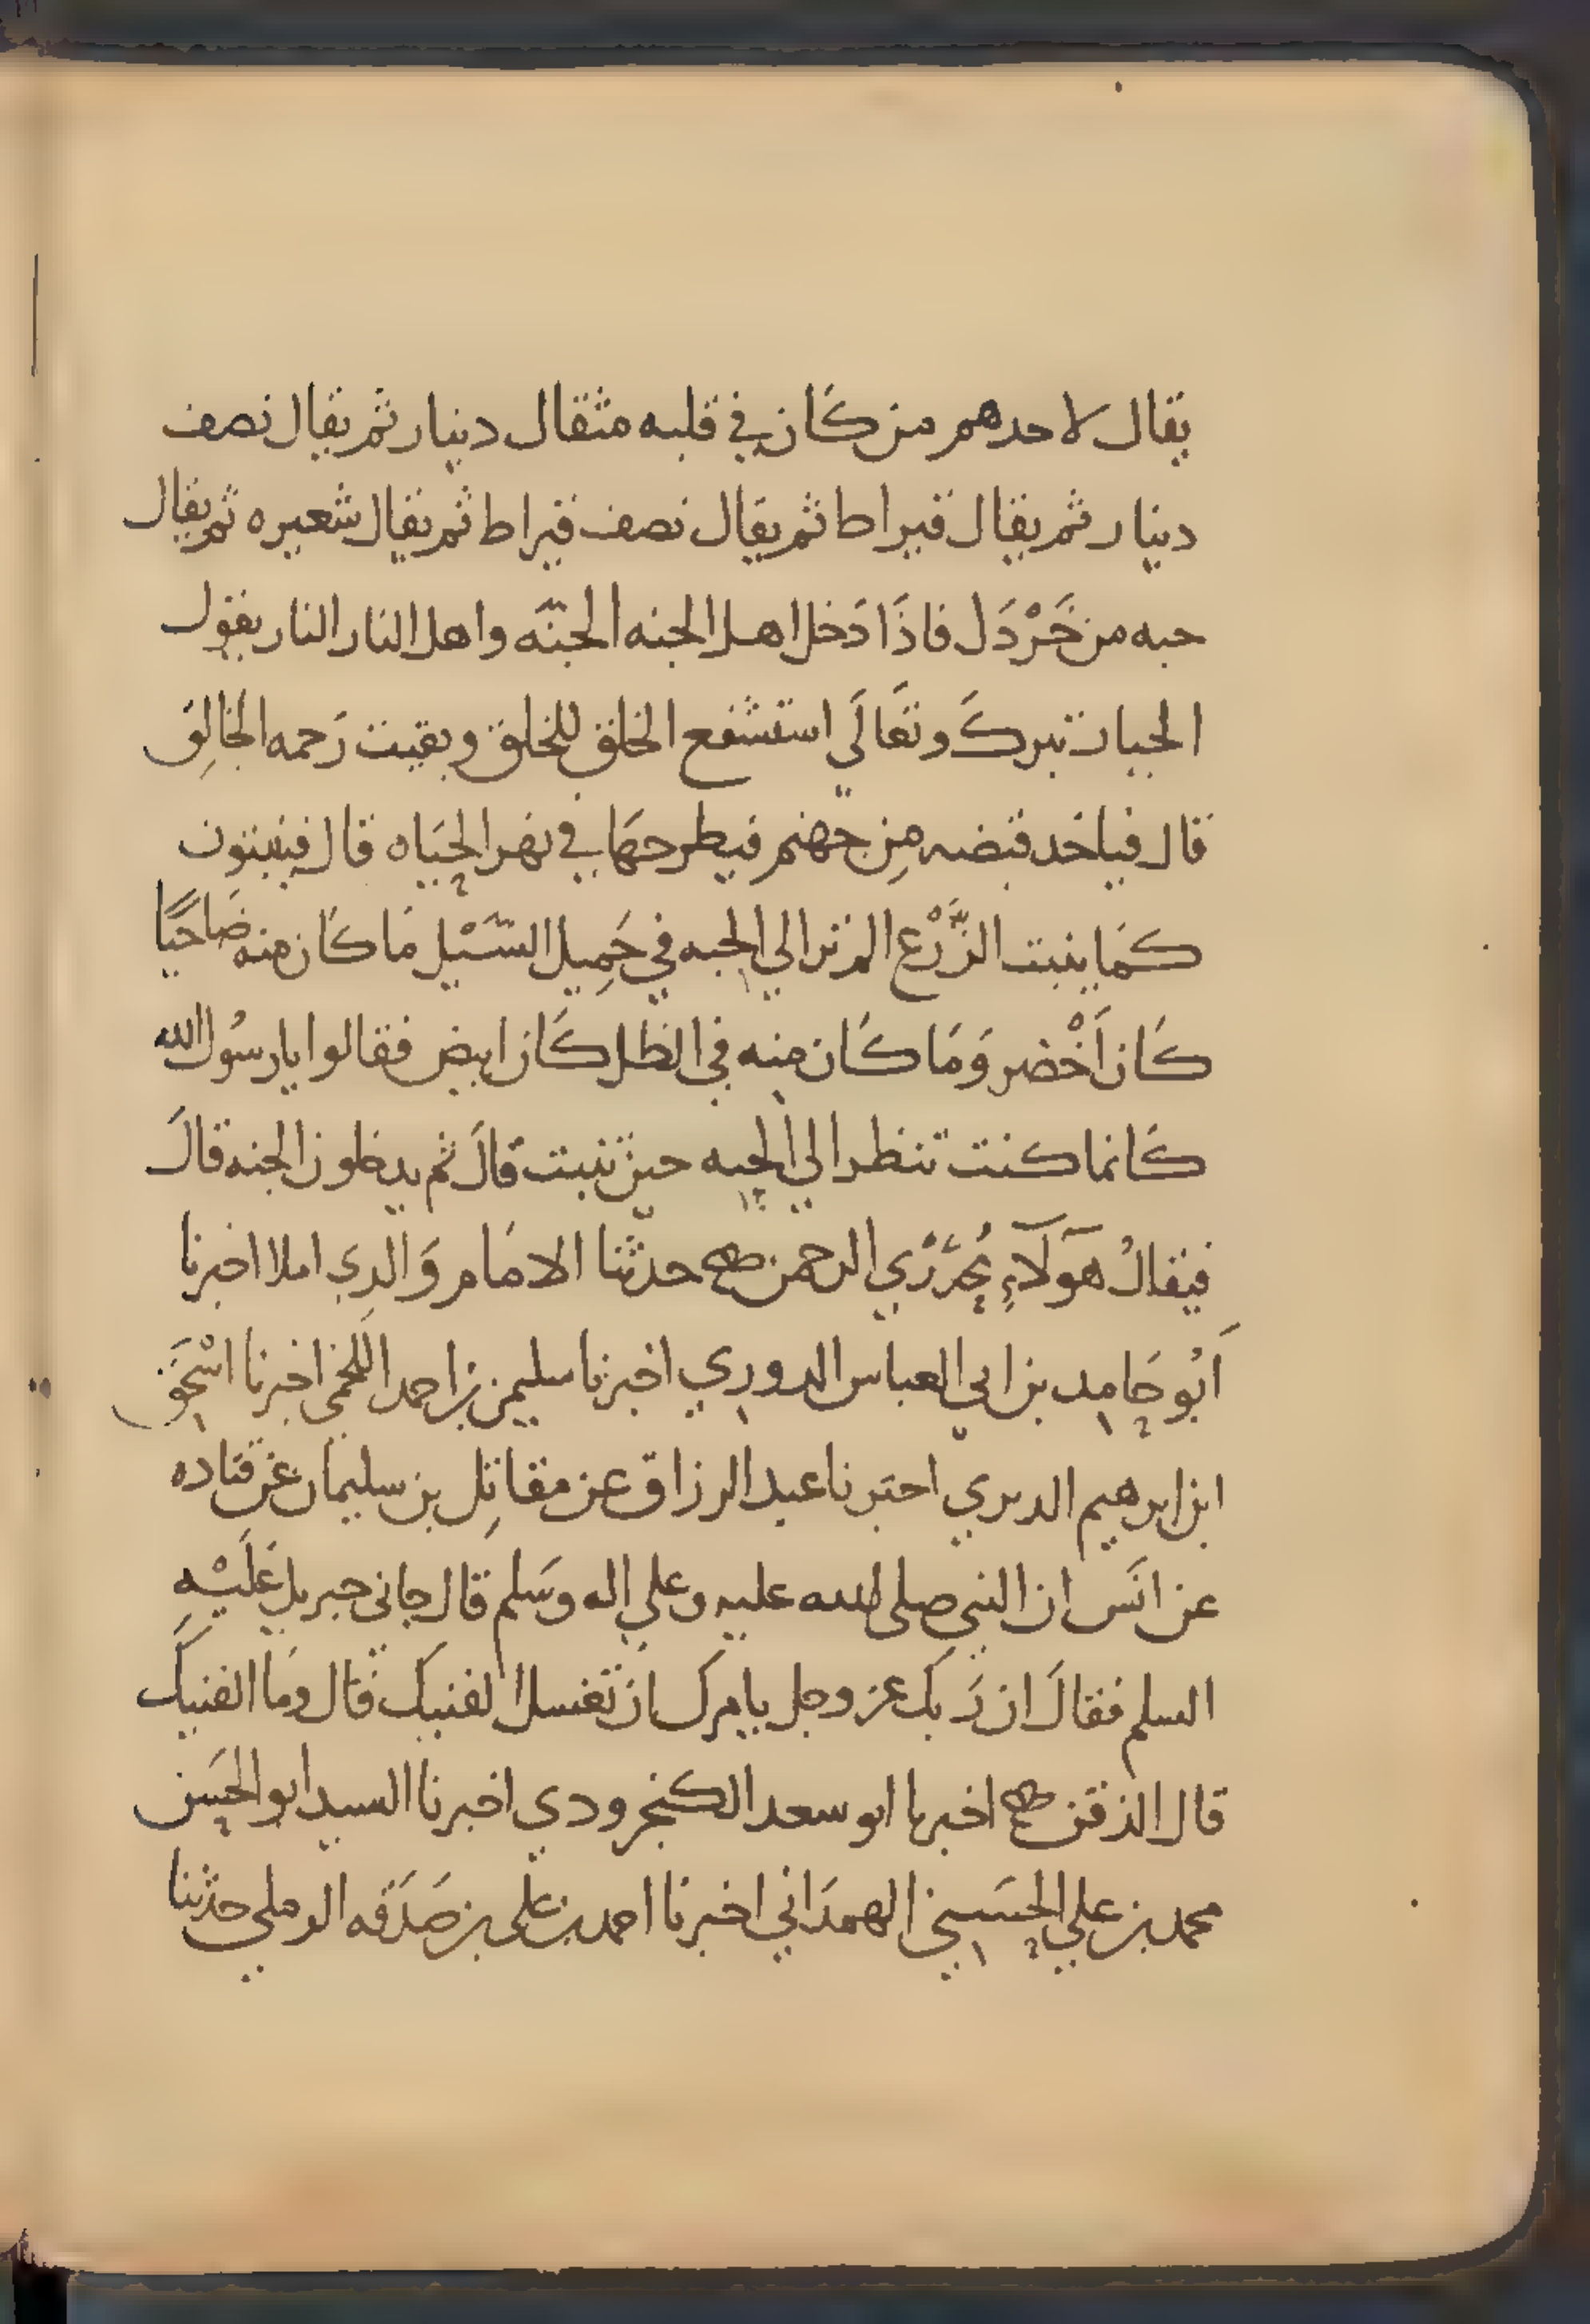 يقال لاحدهم من كَان في قلبه مثقال دينار ثم يقال نصف
دينار ثم يقال قيراط ثم يقال نصف قيراط ثم يقال شعيره ثم يقال
حبه من خَرْدَل فاذَا دَخل اهل الجنه الجنّه واهل النار النار يقول
الجبار تبركَ وتعَالَي استشفع الخلق للخلق وبقيت رَحمه الخالِق
قال فياخد قبضه مِن جهنم فيطرحهَا في نهر الحيَاه قال فينبتون
كمَا ينبت الزَّرْع الم تر الي الحبه في حَمِيل السَّيْل مَا كَان منه ضَاحيًا
كَان اَخْضر وَمَا كَان منه في الظل كَان ابيض فقالوا يا رسُول الله
كَانما كنت تنظر الي الحبه حين تنبت قالَ ثم يدخلون الجنه قالَ
فيقالُ هَوَلَآءِ مُحَرَّرُي الرحمن صح حدثنا الامَام وَالدِي املا اخبرنا
اَبُو حَامِد بن ابي العباس الدورِي اخبرنا سليمن بن احمد اللَّخمي اخبرنا اسْحَق
ابن ابرهيم الدبري اخبرنا عبد الرزاق عن مقاتِل بن سليمان عن قتاده
عن انَس ان النبي صلى الله عليه وعلي اله وسَلم قال جاني جبريل عَلَيْهِ
السلم فقالَ ان رَبكَ عز وجل يامركَ ان تغسل الفنيك قال ومَا الفنيكَ
قال الذقن صح اخبرنا ابو سعد الكنجرودي اخبرنا السيد ابو الحسَن
محمد بن علي الحسَيني الهمدَاني اخبرنا احمد بن علي بن صَدَقه الرملي حدثنا